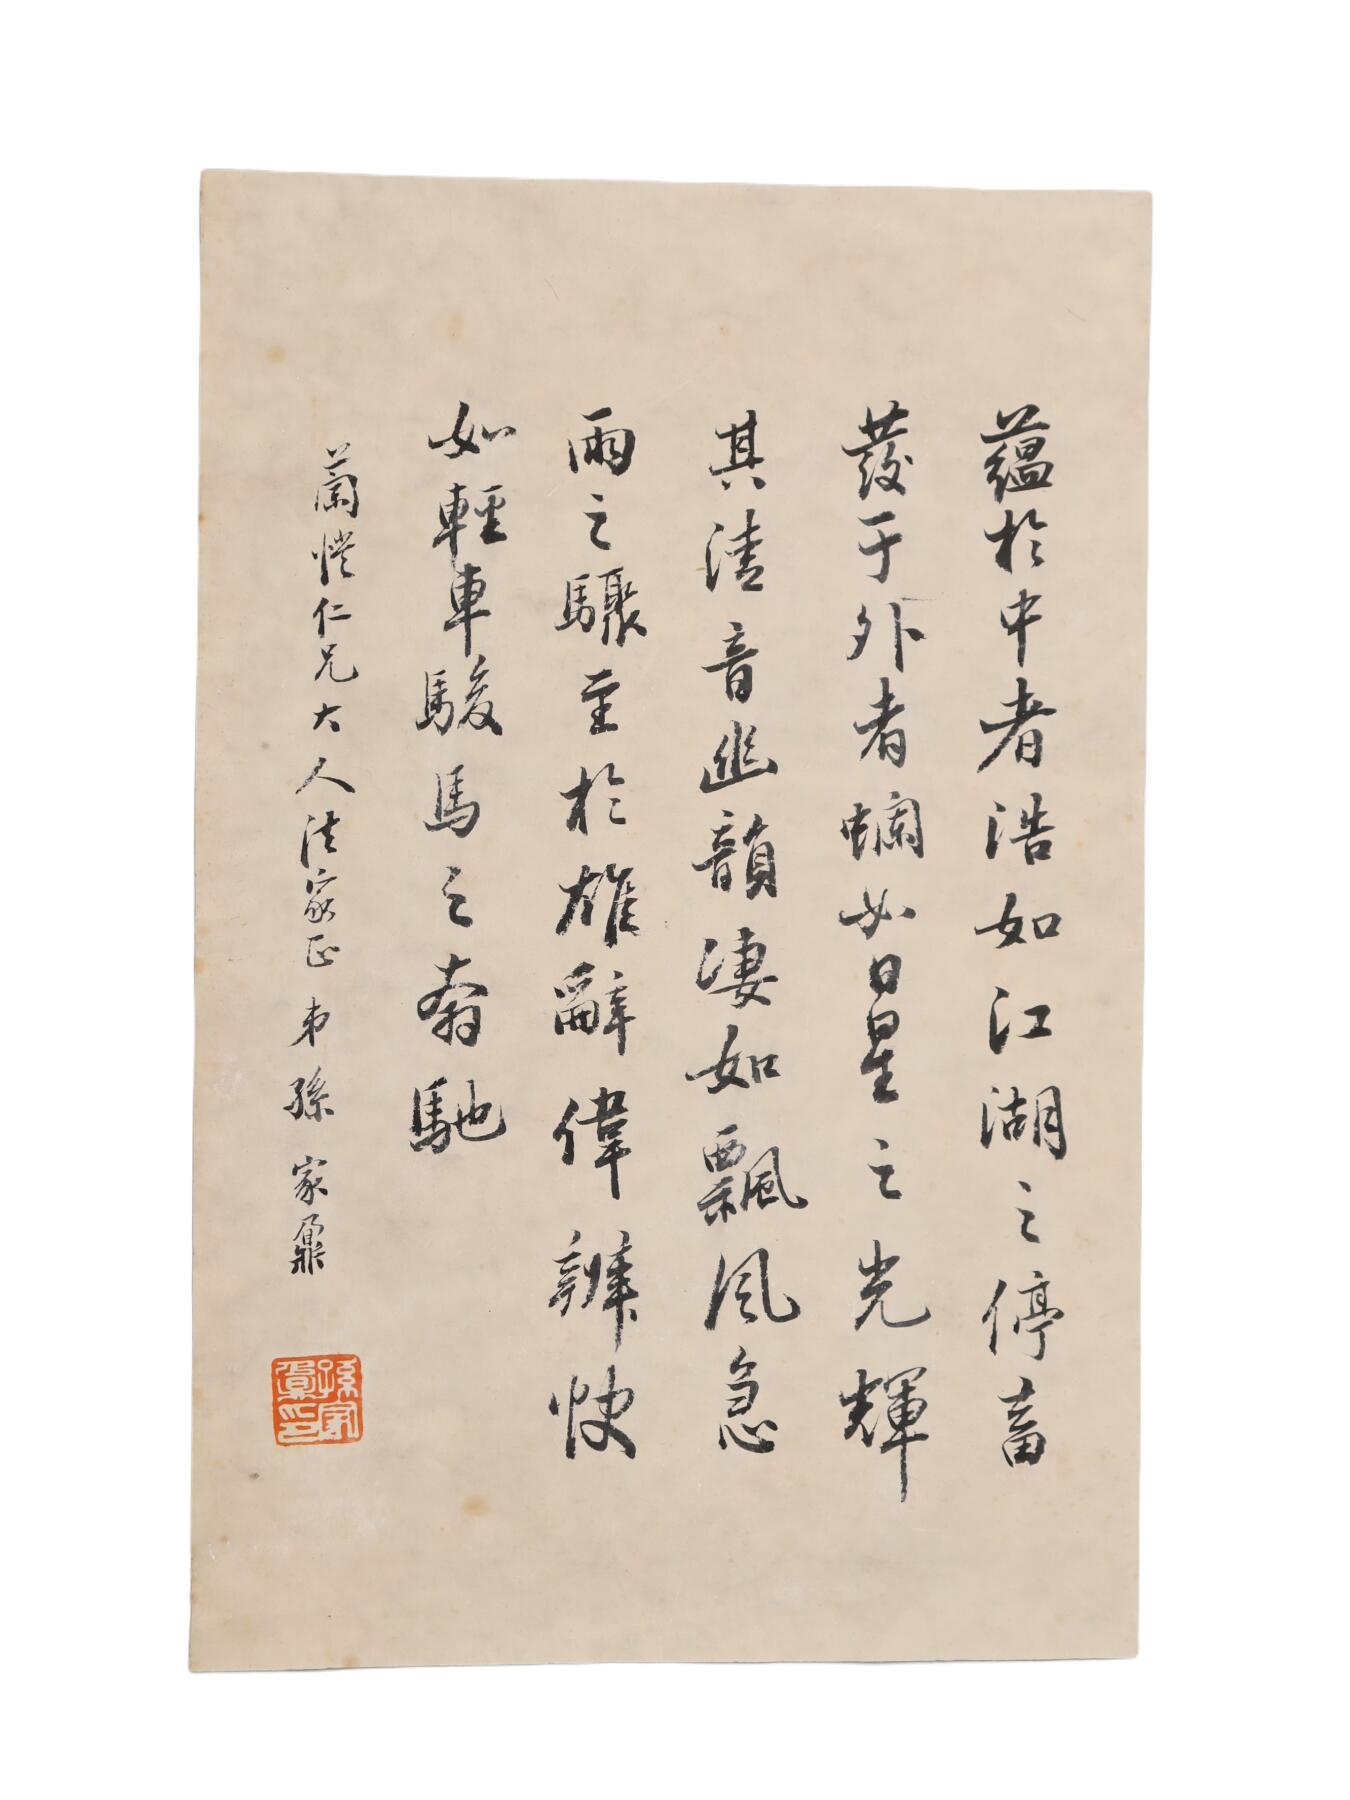 蘊於中者浩如江湖之停畜
發于外者爛如日星之光輝
其清音幽韻凄如飄風急
雨之驟至於雄辭偉辯快
如輕車駿馬之奔馳
蘭愷仁兄大人法家正 弟孫家鼐
孫家鼐印